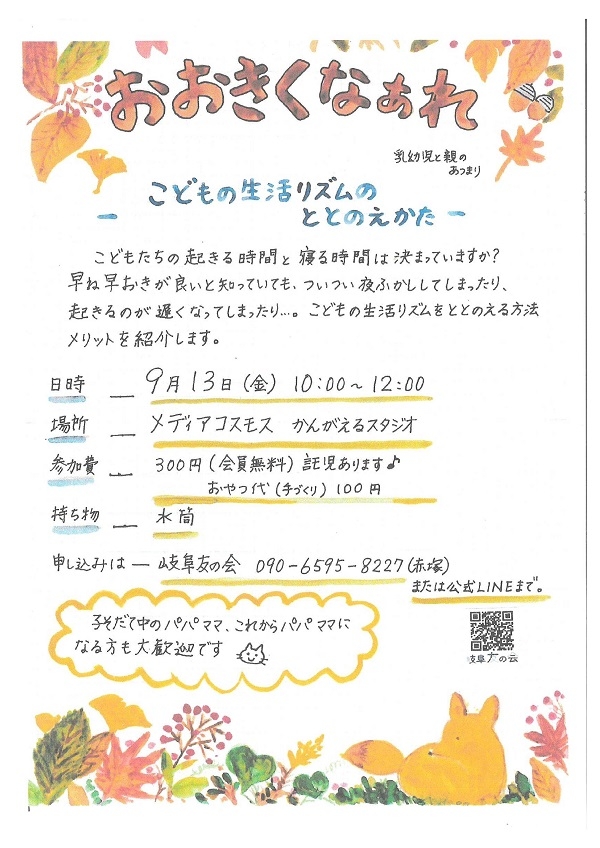 おおきくなぁれ
乳幼児と親の
あつまり
ー こどもの生活リズムの
ととのえかた ー
こどもたちの起きる時間と寝る時間は決まっていますか?
早ね早おきが良いと知っていても、ついつい夜ふかししてしまったり、
起きるのが遅くなってしまったり…。こどもの生活リズムをととのえる方法
メリットを紹介します。
日時 ― 9月13日(金) 10:00~12:00
場所 ― メディアコスモス かんがえるスタジオ
参加費 ― 300円(会員無料)託児あります♪
おやつ代(手づくり)100円
持ち物 ― 水筒
申し込みは ― 岐阜友の会 090-6595-8227(赤塚)
または公式LINEまで。
子そだて中のパパママ、これからパパママに
なる方も大歓迎です
岐阜友の会